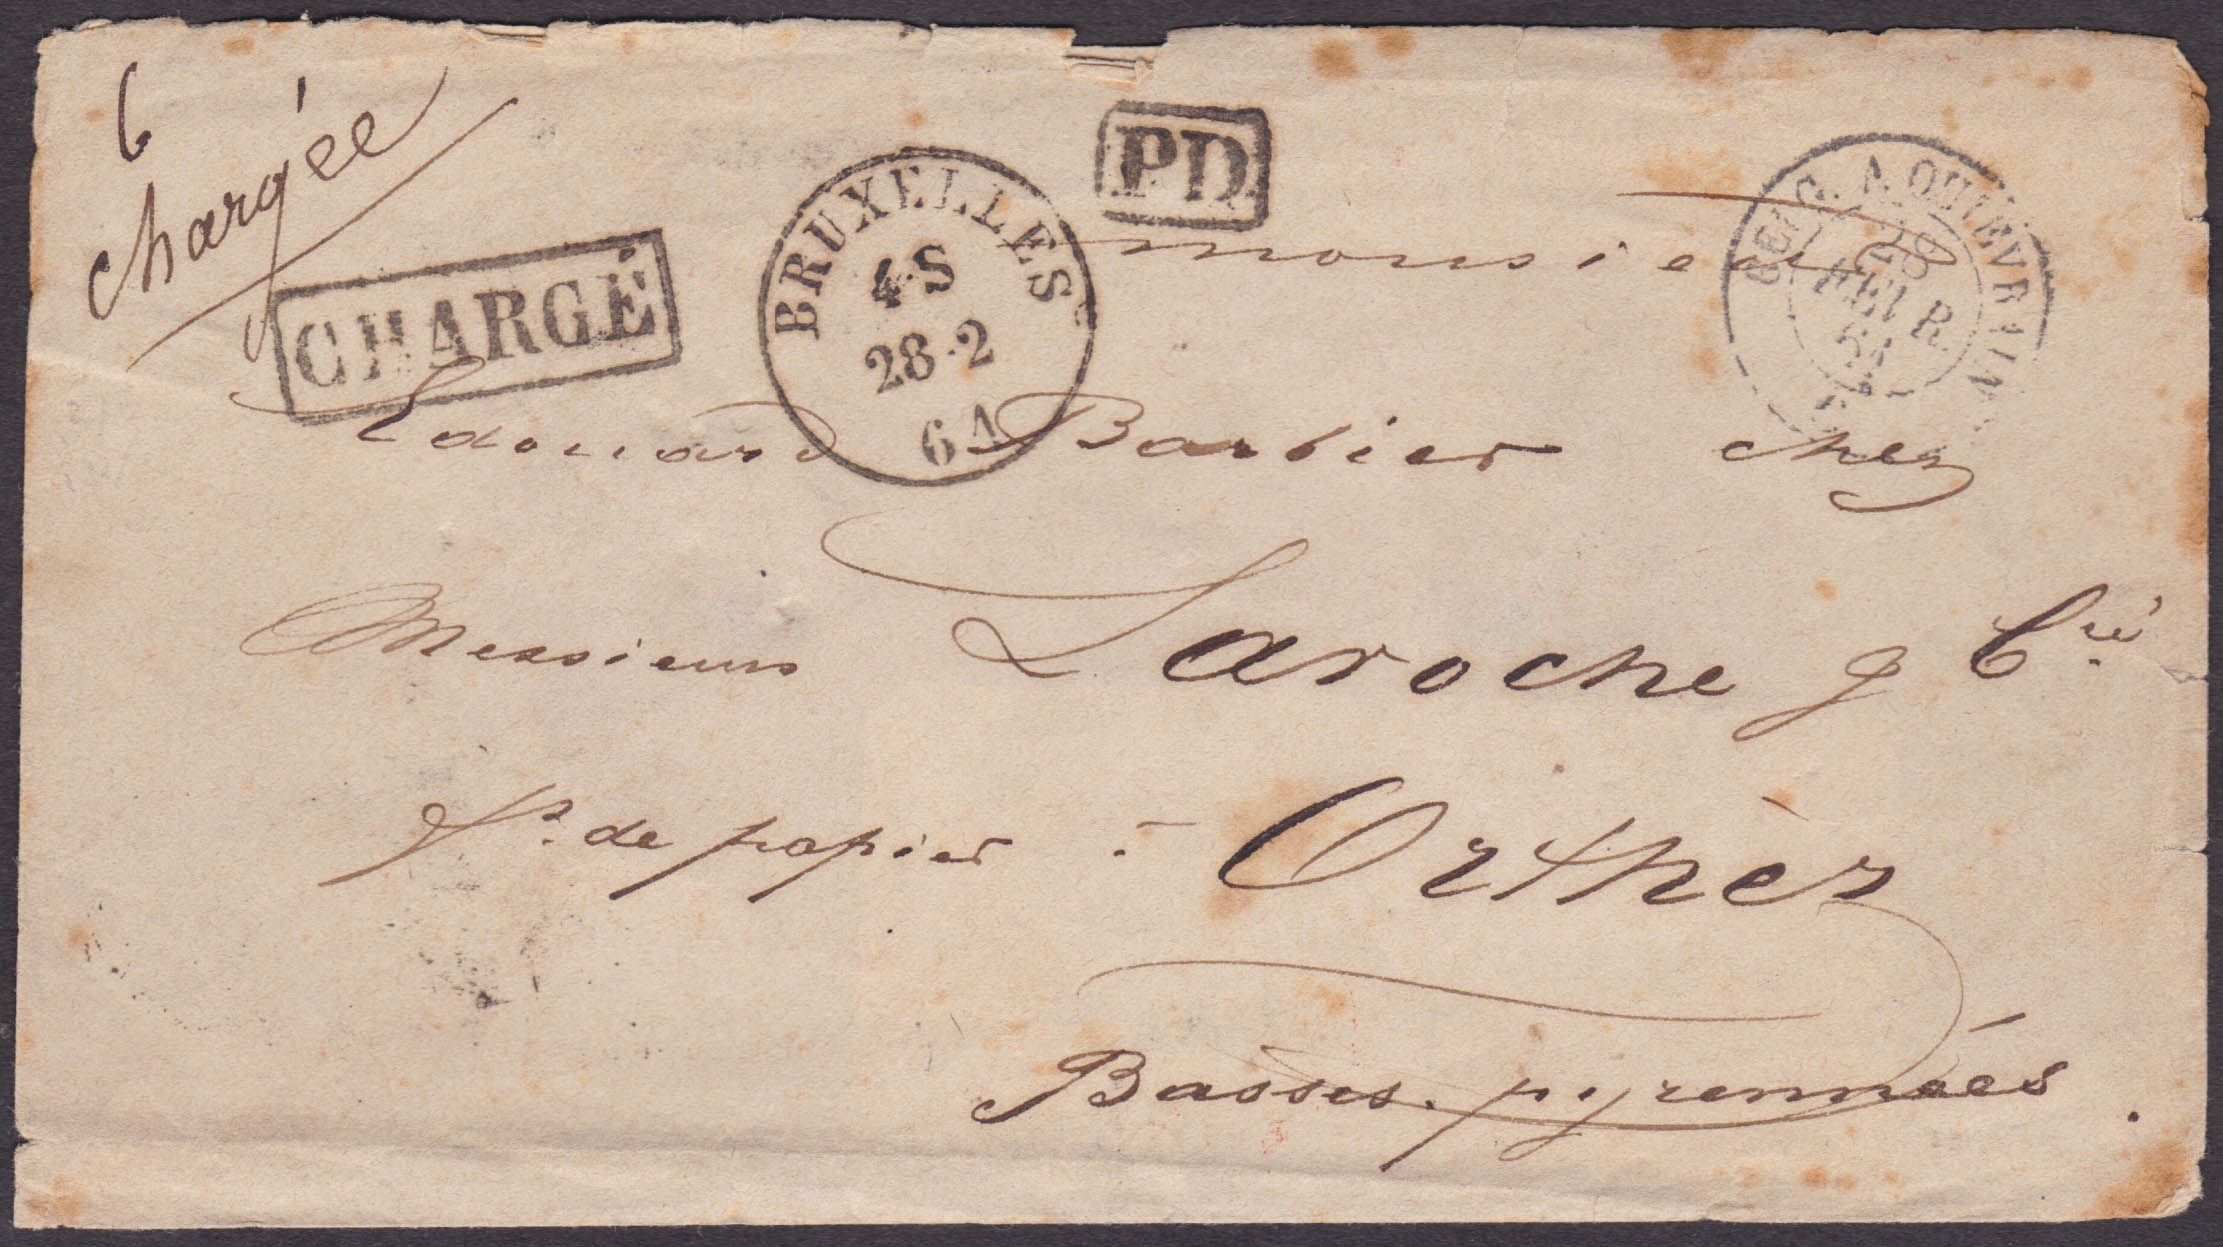 6
chargée
CHARGÉ
BRUXELLES
4·S
28·2
61
PD
BELG. A QUIÉVRAIN
28
FEVR.
61
monsieur
Edouard Barbier chez
Messieurs Laroche & Cie
ft. de papier - Orthèz
Basses-pyrennées.